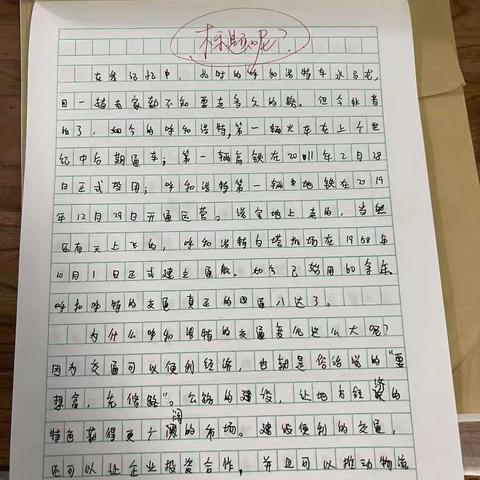 标题呢?
在我记忆中,儿时的呼和浩特车水马龙,
因一趟去家勤不知要走多久的路。但今非昔
比了,如今的呼和浩特,第一辆火车在上个世
纪中后期通车;第一辆高铁在2011年2月28
日正式启用;呼和浩特第一辆地铁在2019
年12月29日开通运营。除了地上走的,当然
还有天上飞的,呼和浩特白塔机场在1958年
10月1日正式建立通航。如今已启用60余年。
呼和浩特的交通真正的四通八达了。
为什么呼和浩特的交通变化这么大呢?
因为交通可以便利经济,也就是俗话说的“要
想富,先修路”。公路的建设,让地方经济的
特色获得更广阔的市场。建设便利的交通,
还可以让企业投资合作,并且可以推动物流